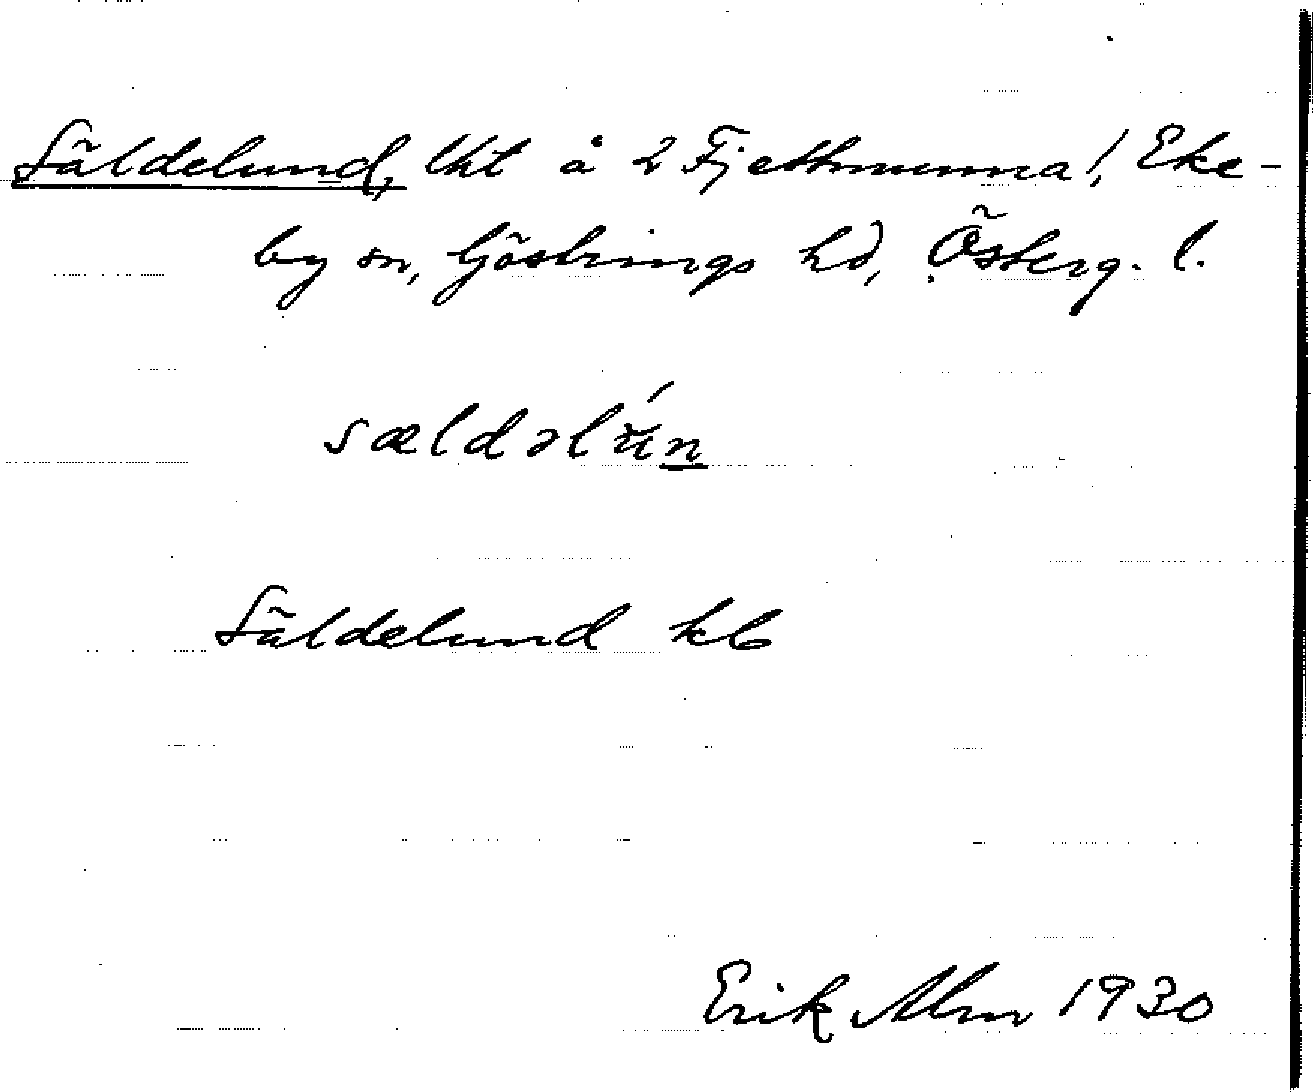 Säldelund, lht å 2 Fjettmunna!, Eke-
by sn, Göstrings hd, Österg. l.
sældəlún
Säldelund kb
Erik Alm 1930